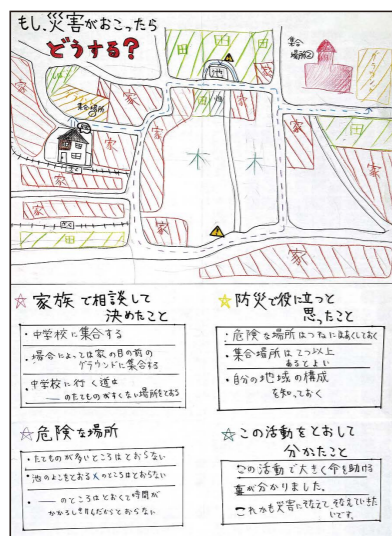 もし、災害がおこったら
どうする？
田
田
田
集合
場所②
グラウンド
池
家
家
田
集合場所①
家
家
田
家
家
田
木
木
家
さく
家
家
さく
田
家
家
☆家族で相談して
決めたこと
・中学校に集合する
・場合によっては家の目の前の
グラウンドに集合する
・中学校に行く道は
のたてものがすくない場所をとおる
☆防災で役に立つと
思ったこと
・危険な場所はつねにはあくしておく
・集合場所は2つ以上
あるとよい
・自分の地域の構成
を知っておく
☆危険な場所
・たてものが多いところはとおらない
・池のよこをとおる
のところはとおらない
・
のところはとおくて時間が
かかるしきけんだからとおらない
☆この活動をとおして
分かたこと
この活動で大きく命を助ける
事が分かりました。
これからも災害にそなえて、そなえていきた
いです。